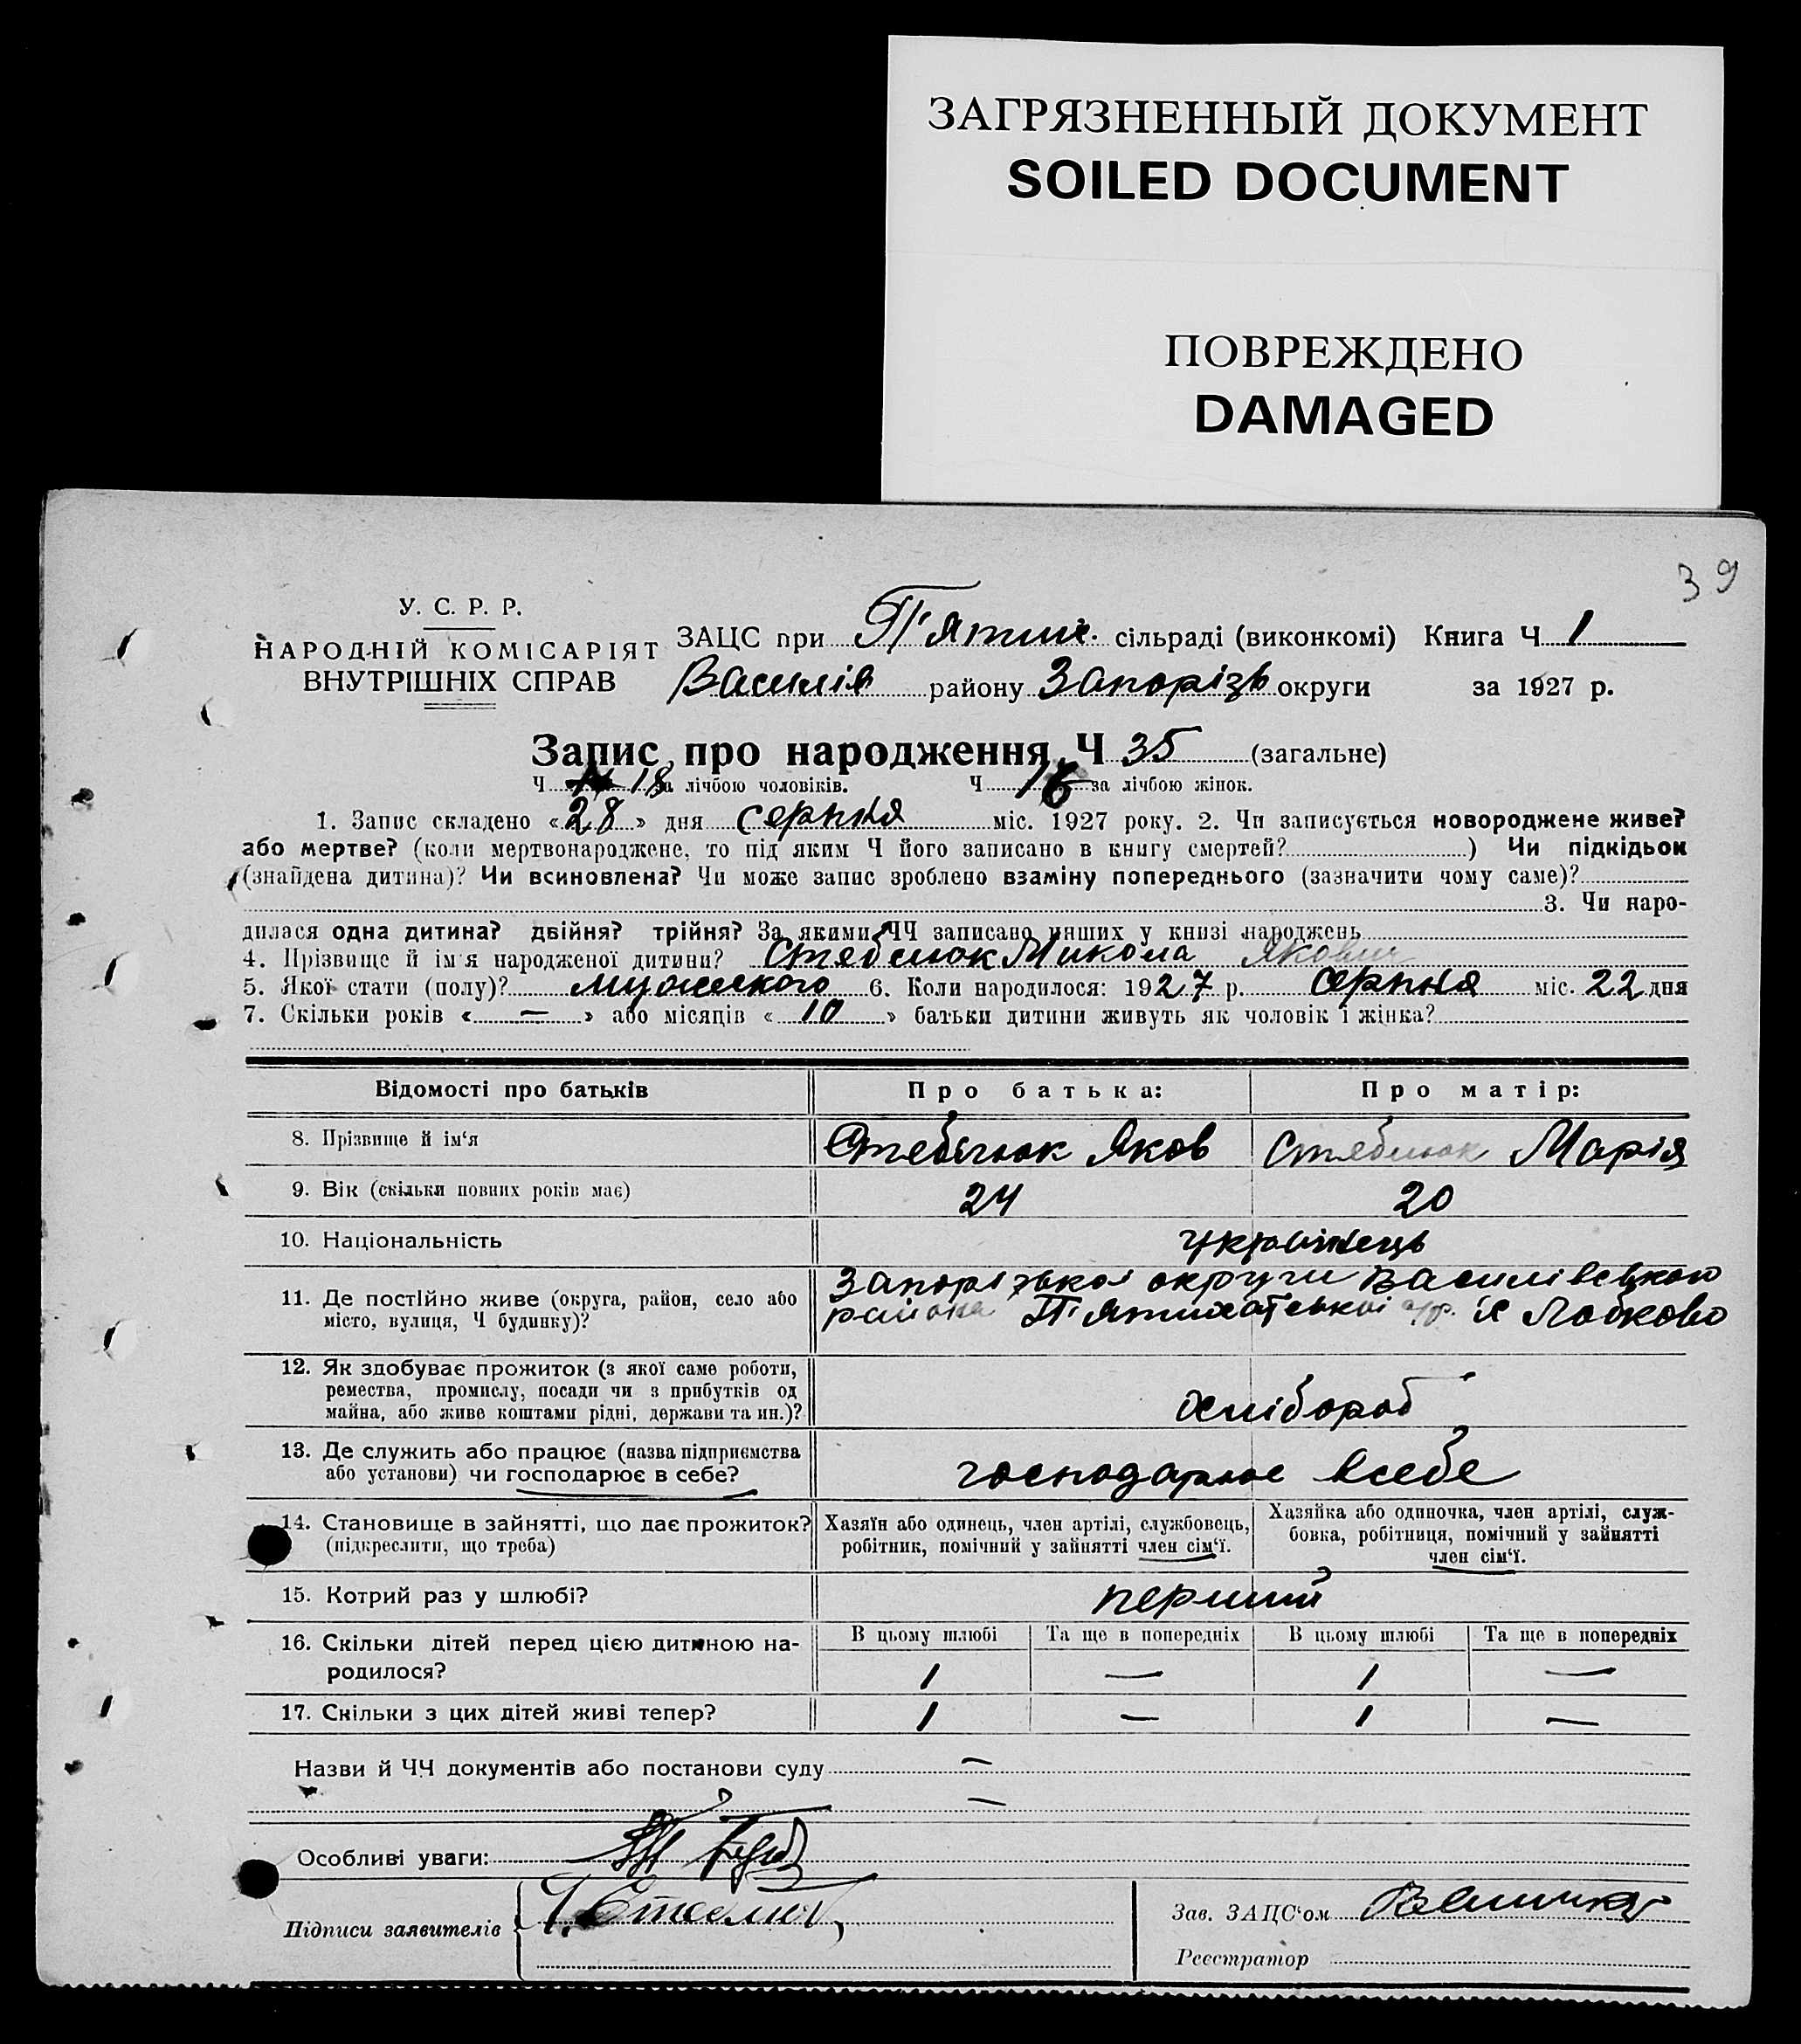 ЗАГРЯЗНЕННЫЙ ДОКУМЕНТ
SOILED DOCUMENT
ПОВРЕЖДЕНО
DAMAGED
39
У. С. Р. Р.
НАРОДНІЙ КОМІСАРІЯТ
ВНУТРІШНІХ СПРАВ
ЗАЦС при П'ятих. сільраді (виконкомі) Книга Ч 1
Василів району Запорізь округи за 1927 р.
Запис про народження Ч 35 (загальне)
Ч 18 за лічбою чоловіків. Ч за лічбою жінок.
1. Запис складено « 28 » дня серпня міс. 1927 року. 2. Чи записується новороджене живе?
або мертве? (коли мертвонароджене, то під яким Ч його записано в книгу смертей? ) Чи підкідьок
(знайдена дитина)? Чи всиновлена? Чи може запис зроблено взаміну попереднього (зазначити чому саме)?
3. Чи наро-
дилася одна дитина? двійня? трійня? За якими ЧЧ записано инших у книзі народжень
4. Прізвище й ім'я народженої дитини? Стеблюк Микола Якович
5. Якої стати (полу)? мужеского 6. Коли народилося: 1927 р. серпня міс. 22 дня
7. Скільки років « — » або місяців « 10 » батьки дитини живуть як чоловік і жінка?
Відомості про батьків Про батька: Про матір:
8. Прізвище й ім‘я Яков Стеблюк Марія
9. Вік (скільки повних років має) 24 20
10. Національність українець
11. Де постійно живе (округа, район, село або Запорізької округи Василівського
місто, вулиця, Ч будинку)? района П'ятихатської с/р. Лобково
12. Як здобуває прожиток (з якої саме роботи,
ремества, промислу, посади чи з прибутків од
майна, або живе коштами рідні, держави та ин.)? хлібороб
13. Де служить або працює (назва підприємства
або установи) чи господарює в себе? господарює всебе
14. Становище в зайнятті, що дає прожиток? Хазяїн або одинець, член артілі, службовець, Хазяйка або одиночка, член артілі, служ-
(підкреслити, що треба) робітник, помічний у зайнятті член сім‘ї. бовка, робітниця, помічний у зайнятті
член сім‘ї.
15. Котрий раз у шлюбі? перший
16. Скільки дітей перед цією дитиною на- В цьому шлюбі Та ще в попередніх В цьому шлюбі Та ще в попередніх
родилося? 1 — 1 —
17. Скільки з цих дітей живі тепер? 1 — 1 —
Назви й ЧЧ документів або постанови суду —
—
Особливі уваги:
Підписи заявителів
Зав. ЗАЦС‘ом
Реєстратор